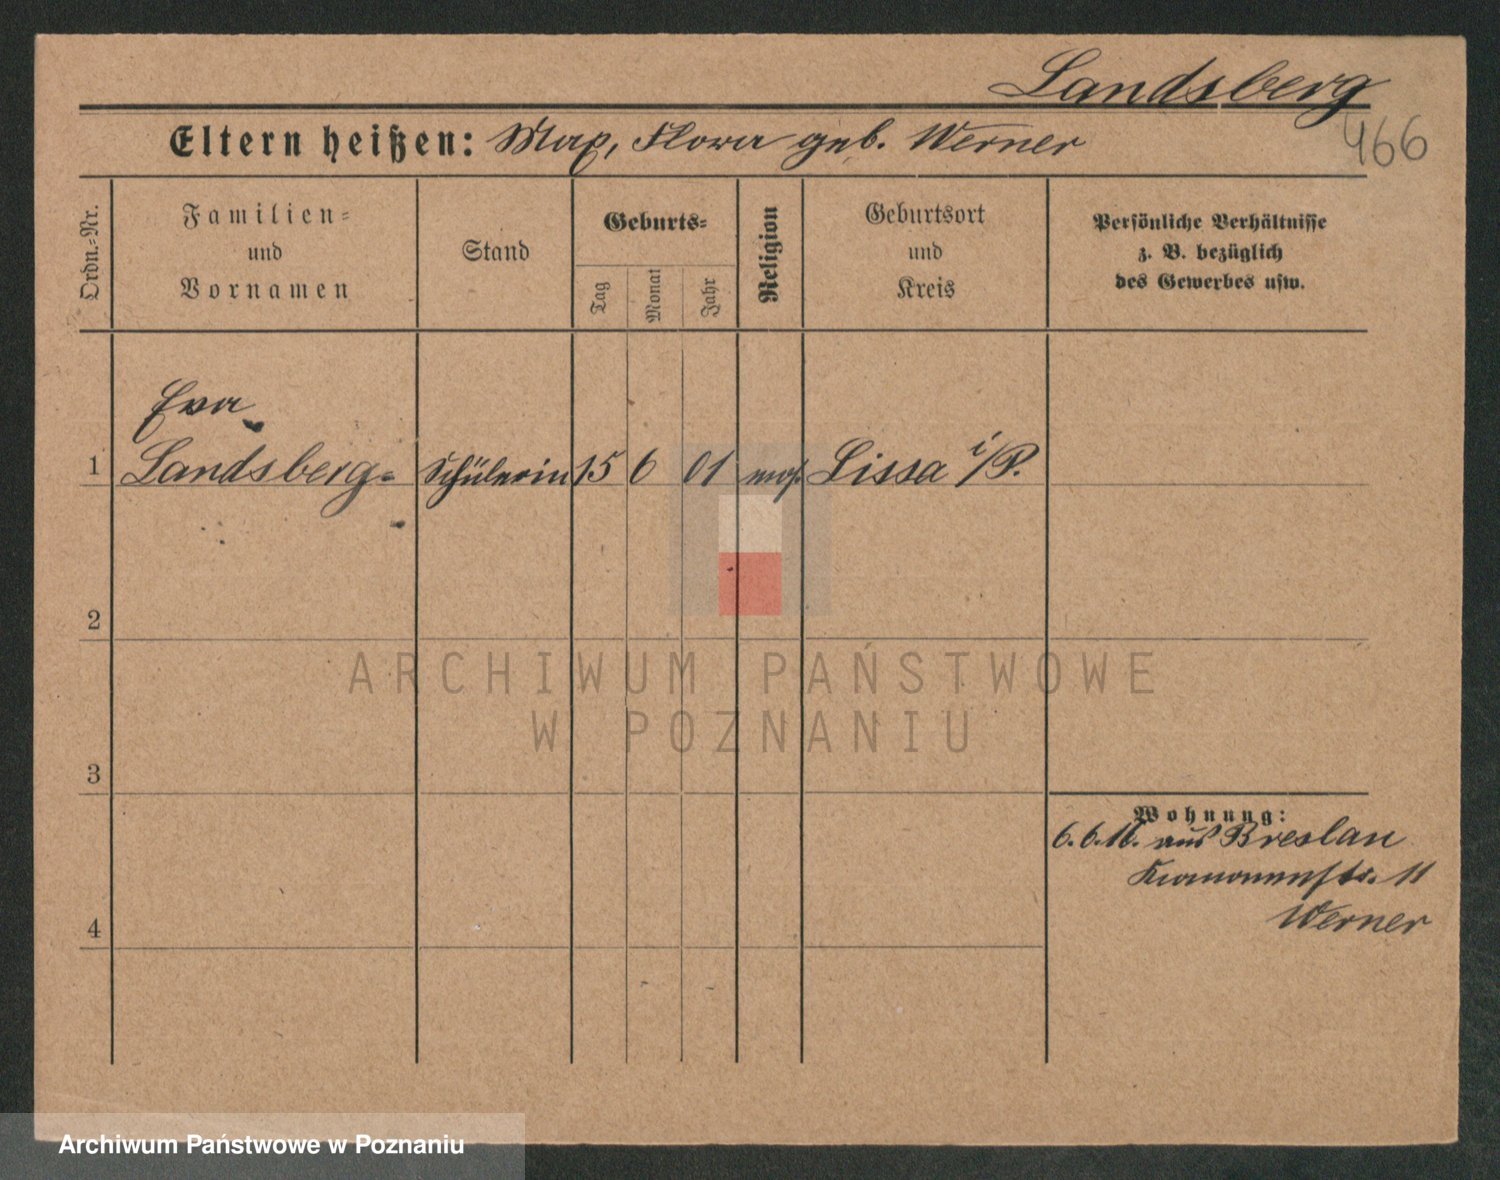 Landsberg
466
Eltern heißen: Max, Flora geb. Werner
Ordn.=Nr.
Familien=
und
Vornamen
Stand
Geburts=
Tag
Monat
Jahr
Religion
Geburtsort
und
Kreis
Persönliche Verhältnisse
z. B. bezüglich
des Gewerbes usw.
Eva
1 Landsberg Schülerin 15 6 01 mos. Lissa i/P.
2
3
4
Wohnung:
6.6.16. aus Breslau
11
Werner
ARCHIWUM PAŃSTWOWE
W POZNANIU
Archiwum Państwowe w Poznaniu